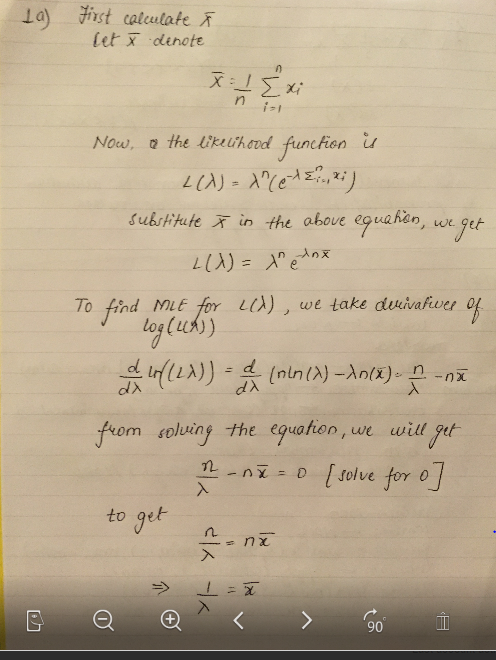 1a) First calculate x̄
Let x̄ denote
x̄ = 1/n Σ_{i=1}^{n} xi
Now, the likelihood function is
L(λ) = λ^n (e^{-λ Σ_{i=1}^{n} xi})
substitute x̄ in the above equation, we get
L(λ) = λ^n e^{-λnx̄}
To find MLE for L(λ), we take derivatives of
log(L(λ))
d/dλ ln((Lλ)) = d/dλ (nln(λ) - λn(x̄) = n/λ - nx̄
from solving the equation, we will get
n/λ - nx̄ = 0 [solve for 0]
to get
n/λ = nx̄
⇒ 1/λ = x̄
90°